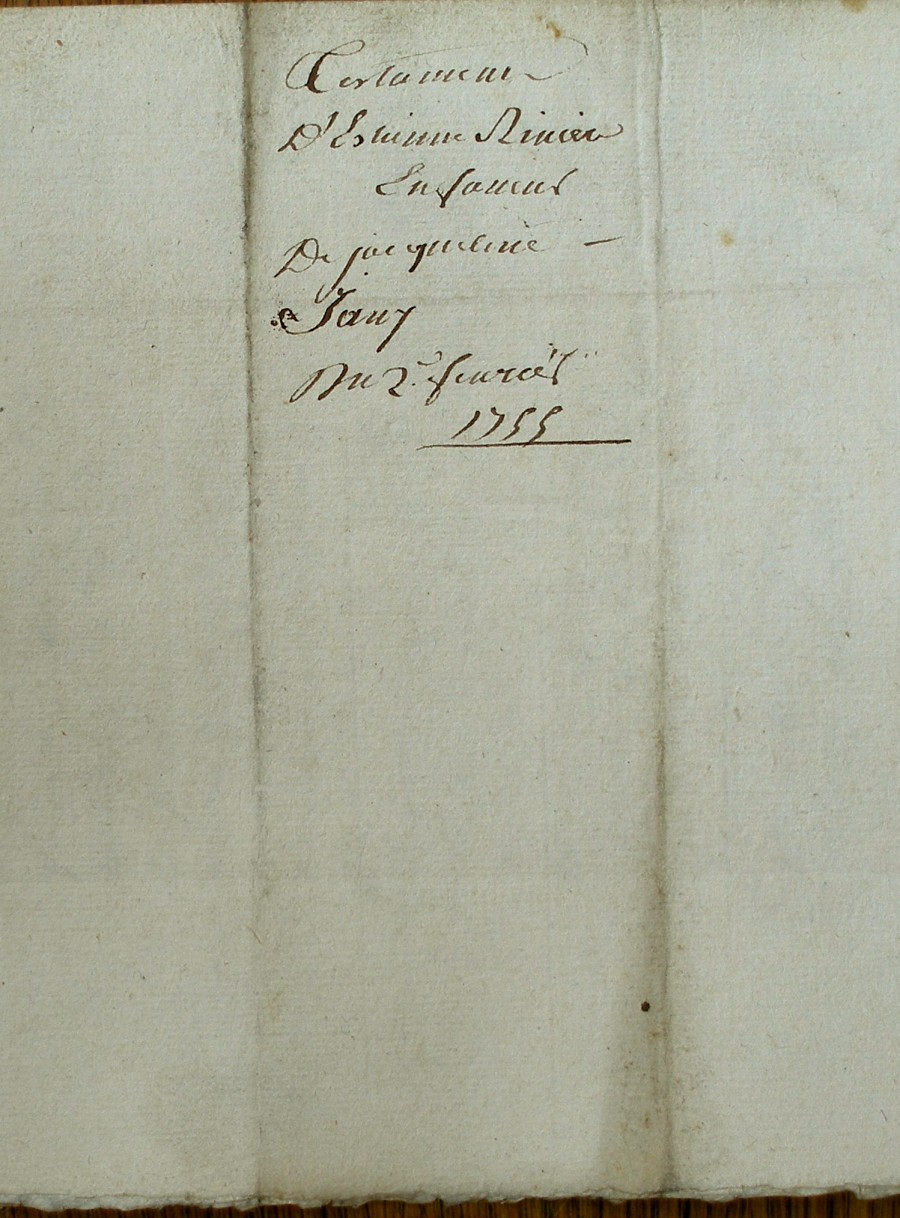 Testament
D'Estienne Rivier
En faveur
De jacqueline —
Jany
Du 2e fevrier
1755